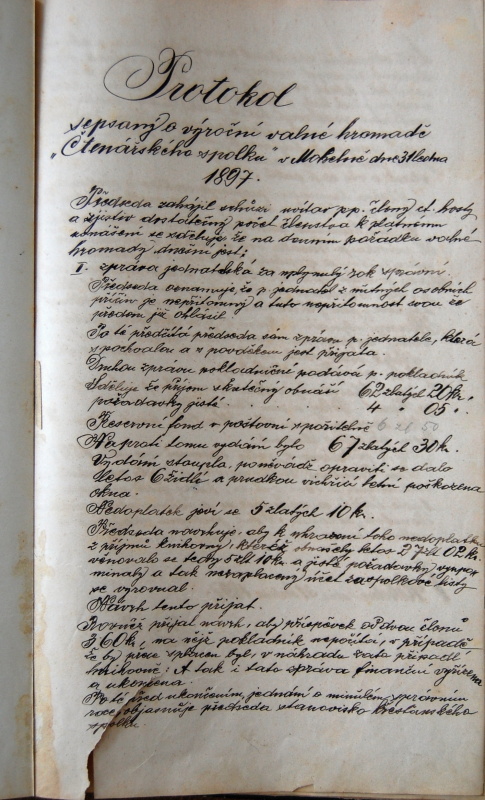 Protokol
sepsaný o výroční valné hromadě
„Čtenářského spolku“ v Mohelně dne 31 ledna
1897.
Předseda zahájil schůzi uvítav p.p. členy ct. hosty
a zjistiv dostatečný počet členstva k platnému
usnášení se sděluje že na denním pořádku valné
hromady dnešní jest;
I. zpráva jednatelská za uplynulý rok správní.
Předseda oznamuje že p. jednatel z nutných osobních
příčin je nepřítomný a tuto nepřítomnost svou že
předem již ohlásil.
Po té předčítá předseda sám zprávu p. jednatele, která
s pochvalou a s povděkem jest přijata.
zprávu pokladniční podává p. pokladník
Sděluje že příjem skutečný obnáší 62 zlatých 20 kr.
požadavky jisté 4 " 05 "
Reservní fond v poštovní spořitelně 6 zl 50
Naproti tomu vydání bylo 67 zlatých 30 k.
Vydání stoupla, poněvadž opraviti se dalo
letos a prudkou vichřicí letní poškozena
okna.
Nedoplatek jeví se 5 zlatých 10 k.
Předseda navrhuje, aby k uhrazení toho nedoplatku
z příjmů knihovny, které obnášely letos 27 zl 02 k.
věnovalo se tedy 5 zl 10 k. a jisté požadavky
a tak nezaplacený účet za spolkové listy
se vyrovnal.
Návrh tento přijat.
Rovněž přijat návrh, aby příspěvek od dvou členů
3 60 k, na nějž pokladník nepočítá, v případě
že by přece splacen byl, v náhradu zase připadl
knihovně. A tak i tato zpráva finanční vyřízena
a ukončena.
Po té před ukončením jednání o minulém správním
roce objasňuje předseda stanovisko křesťanského
spolku.